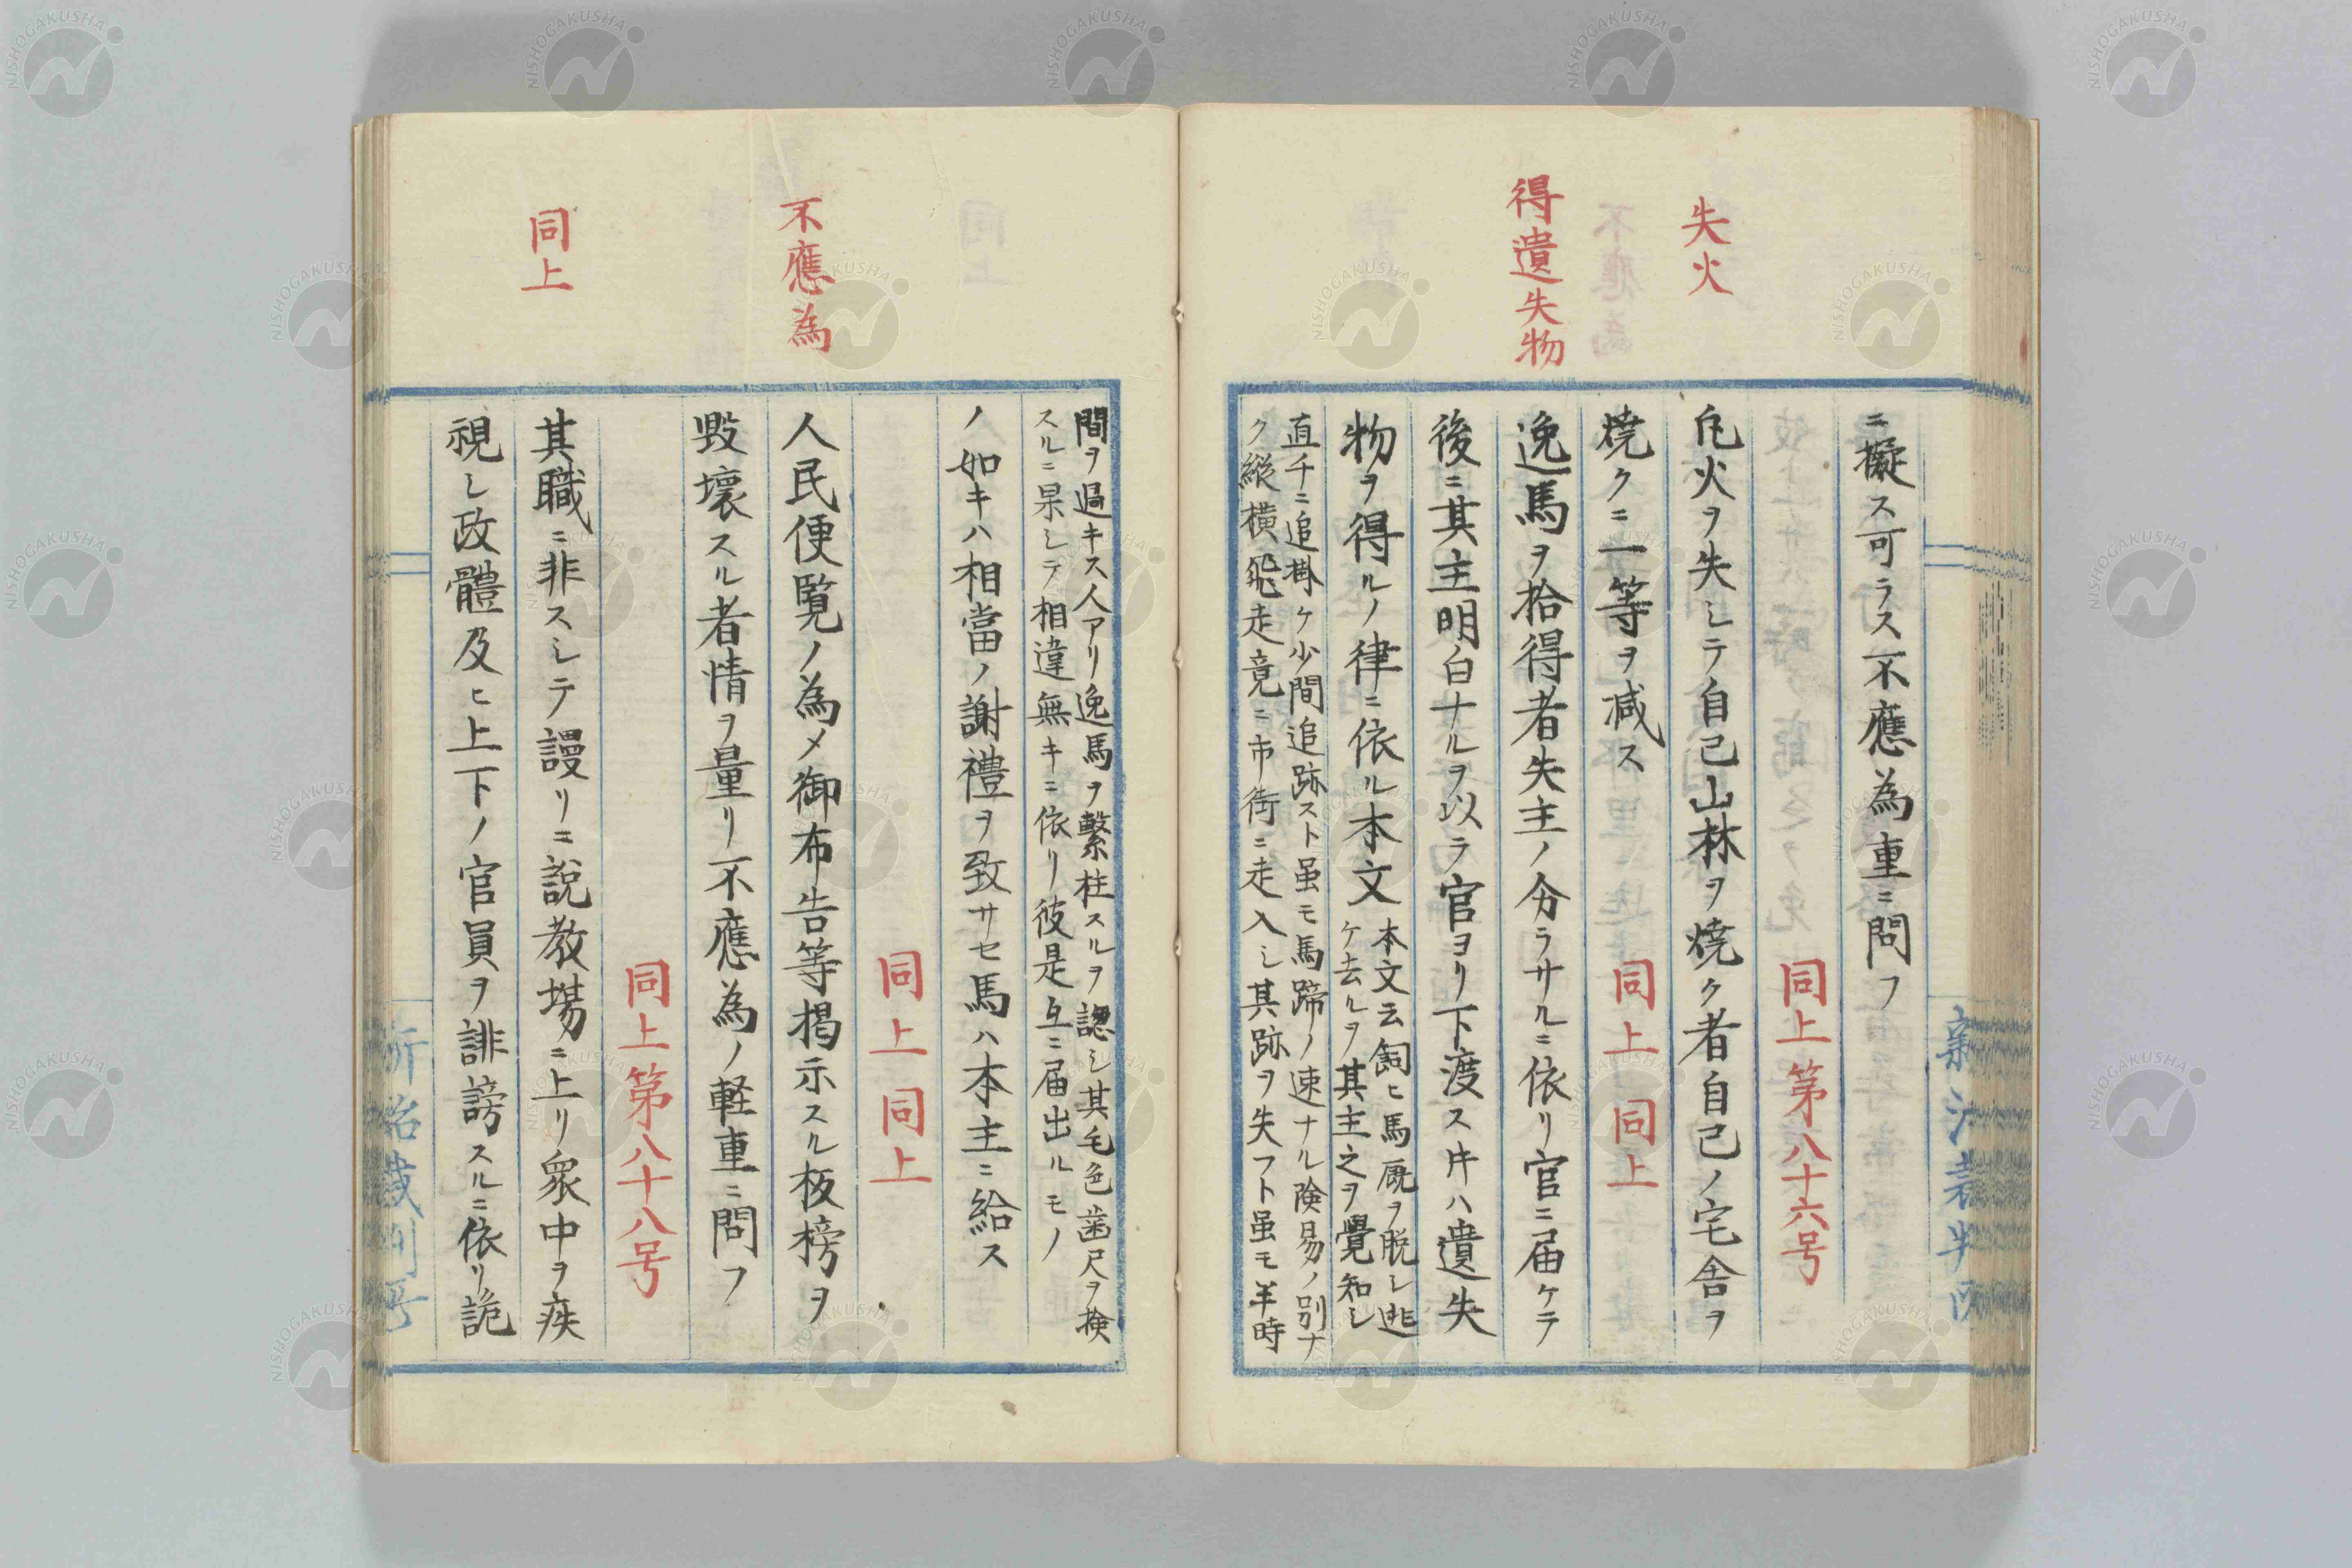 失火
得遺失物
ニ擬ス可ラス不應為重ニ問フ
同上第八十六号
凡火ヲ失シテ自己山林ヲ焼ク者自己ノ宅舎ヲ
焼クニ一等ヲ減ス
同上同上
逸馬ヲ拾得者失主ノ分ラサルニ依リ官ニ届ケテ
後ニ其主明白ナルヲ以テ官ヨリ下渡ス片ハ遺失
物ヲ得ルノ律ニ依ル本文
本文云飼ヒ馬厩ヲ脱シ逃
ケ去ルヲ其主之ヲ覺知シ
直チニ追掛ケ少間追跡スト虽モ馬蹄ノ速ナル険易ノ別ナ
ク縦横飛走竟ニ市街ニ走入シ其跡ヲ失フト虽モ半時
不應為
同上
間ヲ過キス人アリ逸馬ヲ繋柱スルヲ認シ其毛色歯尺ヲ検
スルニ果シテ相違無キニ依リ彼是互ニ届出ルモノ
ノ如キハ相當ノ謝禮ヲ致サセ馬ハ本主ニ給ス
同上同上
人民便覧ノ為メ御布告等掲示スル板榜ヲ
毀壊スル者情ヲ量リ不應為ノ軽重ニ問フ
同上第八十八号
其職ニ非スシテ謾リニ説教場ニ上リ衆中ヲ疾
視シ政體及ヒ上下ノ官員ヲ誹謗スルニ依リ詭
NISHOGAKUSHA